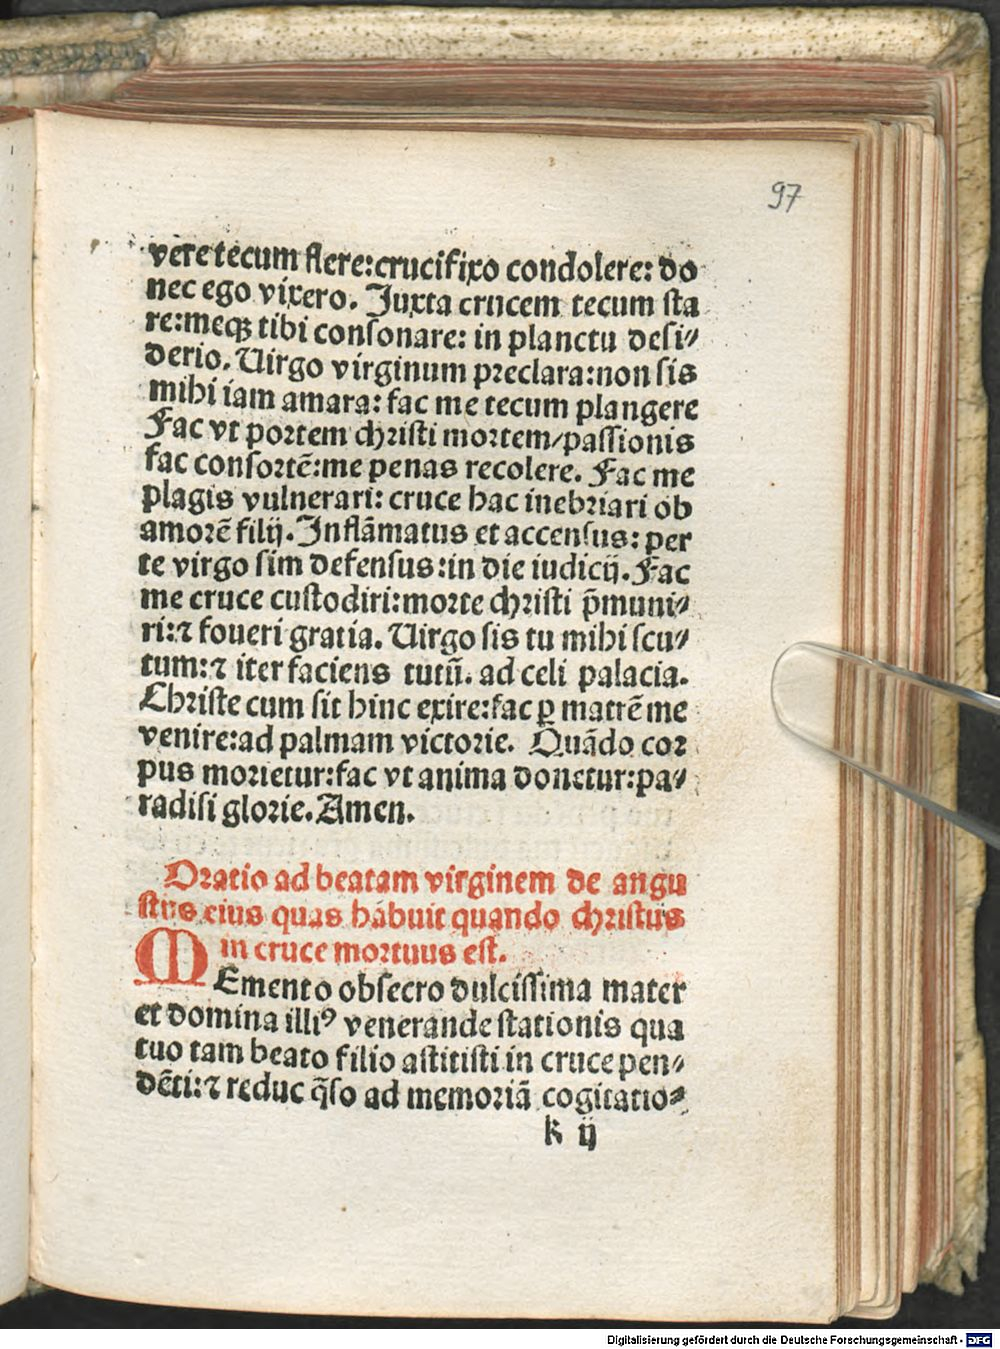 97
vere tecum flere: crucifixo condolere: do
nec ego vixero. Juxta crucem tecum sta
re: meqꝫ tibi consonare: in planctu desi⸗
derio. Uirgo virginum preclara: non sis
mihi iam amara: fac me tecum plangere
Fac vt portem christi mortem/passionis
fac consortē: me penas recolere. Fac me
plagis vulnerari: cruce hac inebriari ob
amorē filij. Inflāmatus et accensus: per
te virgo sim defensus: in die iudicij. Fac
me cruce custodiri: morte christi p̄muni⸗
ri: ⁊ foueri gratia. Uirgo sis tu mihi scu⸗
tum: ⁊ iter faciens tutū. ad celi palacia.
Christe cum sit hinc exire: fac ꝑ matrē me
venire: ad palmam victorie. Quādo cor
pus morietur: fac vt anima donetur: pa⸗
radisi glorie. Amen.
Oratio ad beatam virginem de angu
stiis eius quas habuit quando christus
in cruce mortuus est.
MEmento obsecro dulcissima mater
et domina illiꝰ venerande stationis qua
tuo tam beato filio astitisti in cruce pen⸗
dēti: ⁊ reduc q̄so ad memoriā cogitatio⸗
k ij
Digitalisierung gefördert durch die Deutsche Forschungsgemeinschaft - DFG